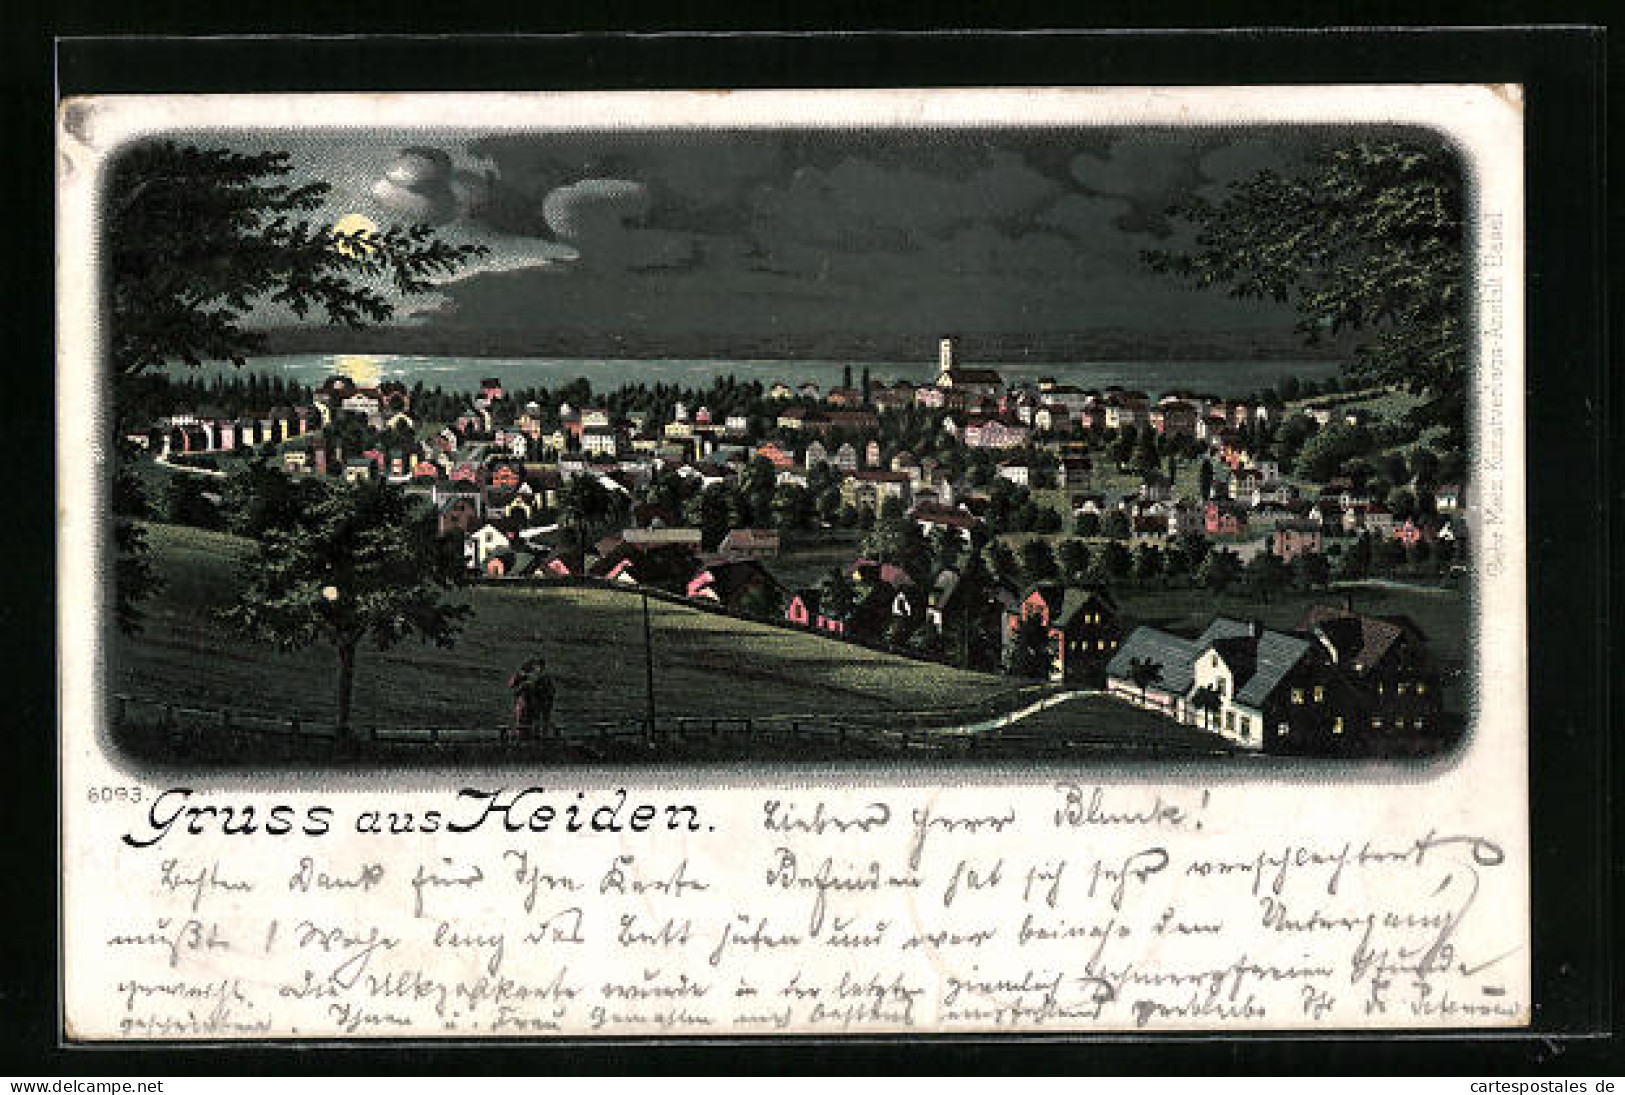 6093. Gruss aus Heiden. Lieber Herr Blunck!
Besten Dank für Ihre Karte Befinden hat sich sehr verschlechtert
mußte 1 Woche lang das Bett hüten und war beinahe dem Untergang
geweiht. Die Ulkpostkarte wurde in der letzten ziemlich schmerzfreien Stunde
geschrieben. Ihnen u. Frau Gemahlin mich bestens empfehlend verbleibe Ihr
Gebr. Metz, Kunstverlags-Anstalt, Basel
Los-ID:
cartespostales de